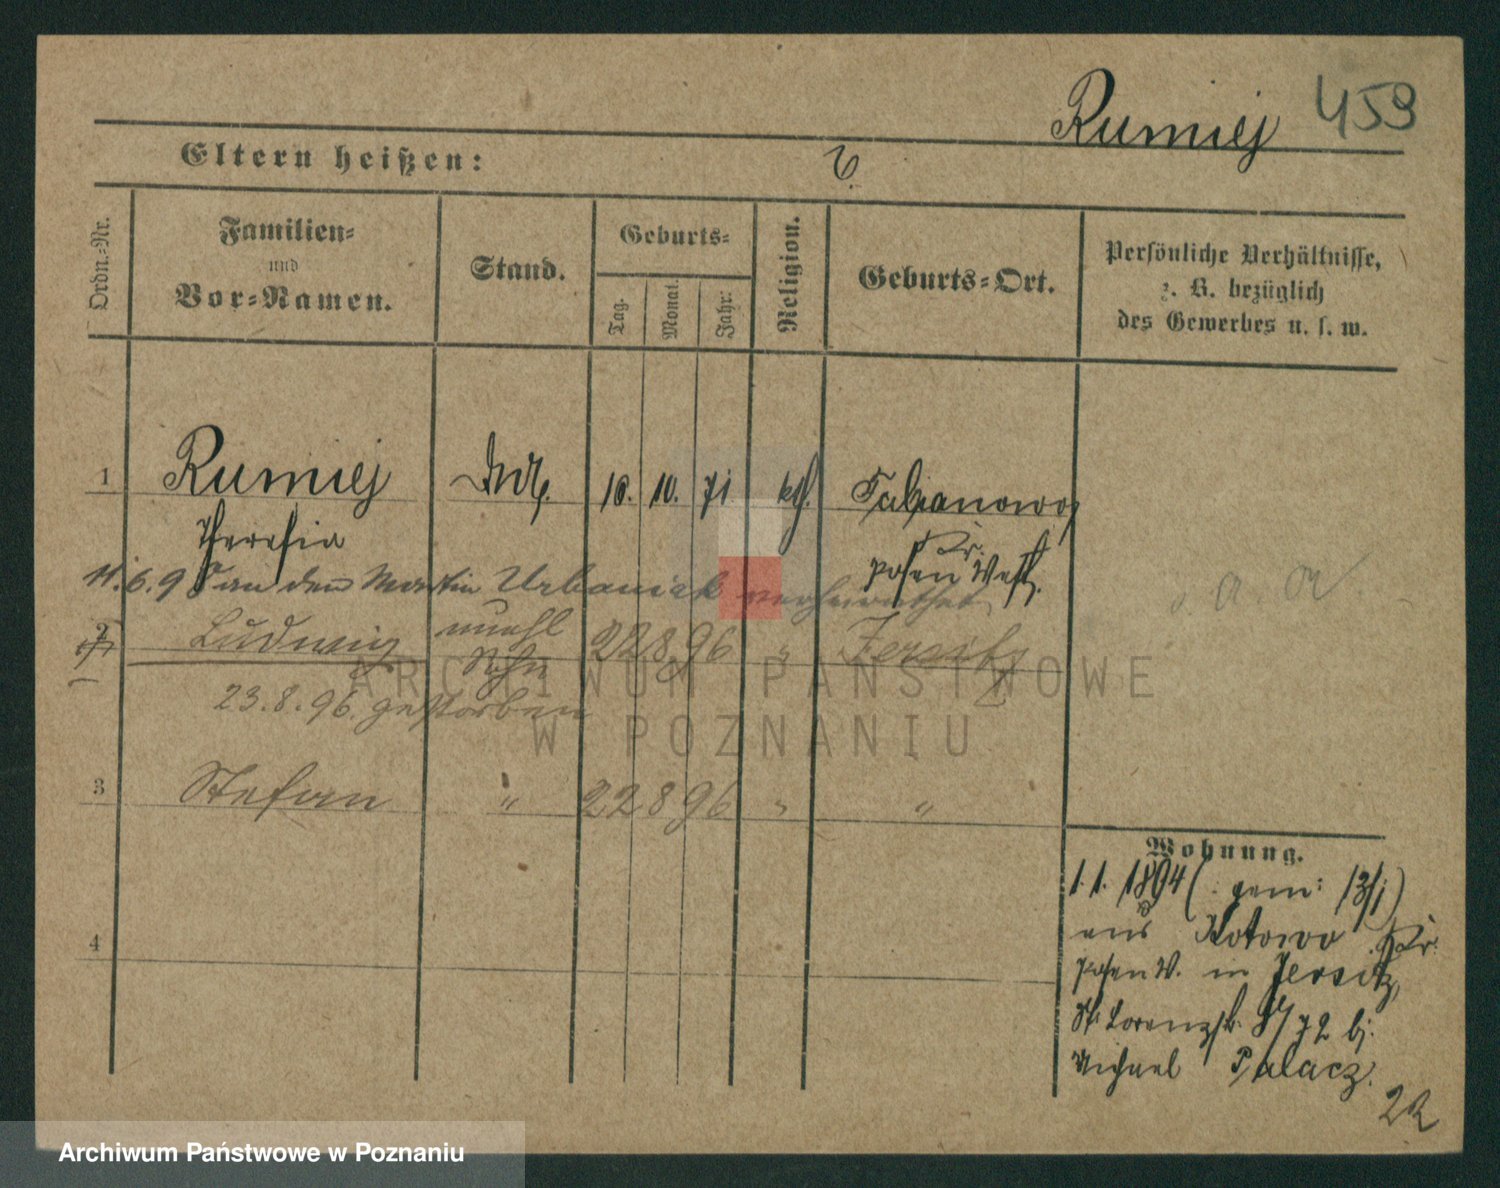 Rumiej 459
Eltern heißen:
Ordn.-Nr.
Familien-
und
Vor-Namen.
Stand.
Geburts-
Tag.
Monat.
Jahr.
Religion.
Geburts-Ort.
Persönliche Verhältnisse,
z. B. bezüglich
des Gewerbes u. s. w.
1 Rumiej 10. 10. 71 kth. Fabianowo
Theresia Kr.
Posen West.
11.6.9 an den Martin Urbaniak verheirathet
2 Ludwig unehl Sohn 22 8 96 " Jersitz
23.8.96 gestorben
3 Stefan " 22 8 96 " "
4
Wohnung.
1.1.1894 (: gem: 13/1)
aus Kotowo Kr.
Posen W. in Jersitz,
St. Lorenzstr. 72 b.
Michael Palacz.
ARCHIWUM PAŃSTWOWE
W POZNANIU
Archiwum Państwowe w Poznaniu